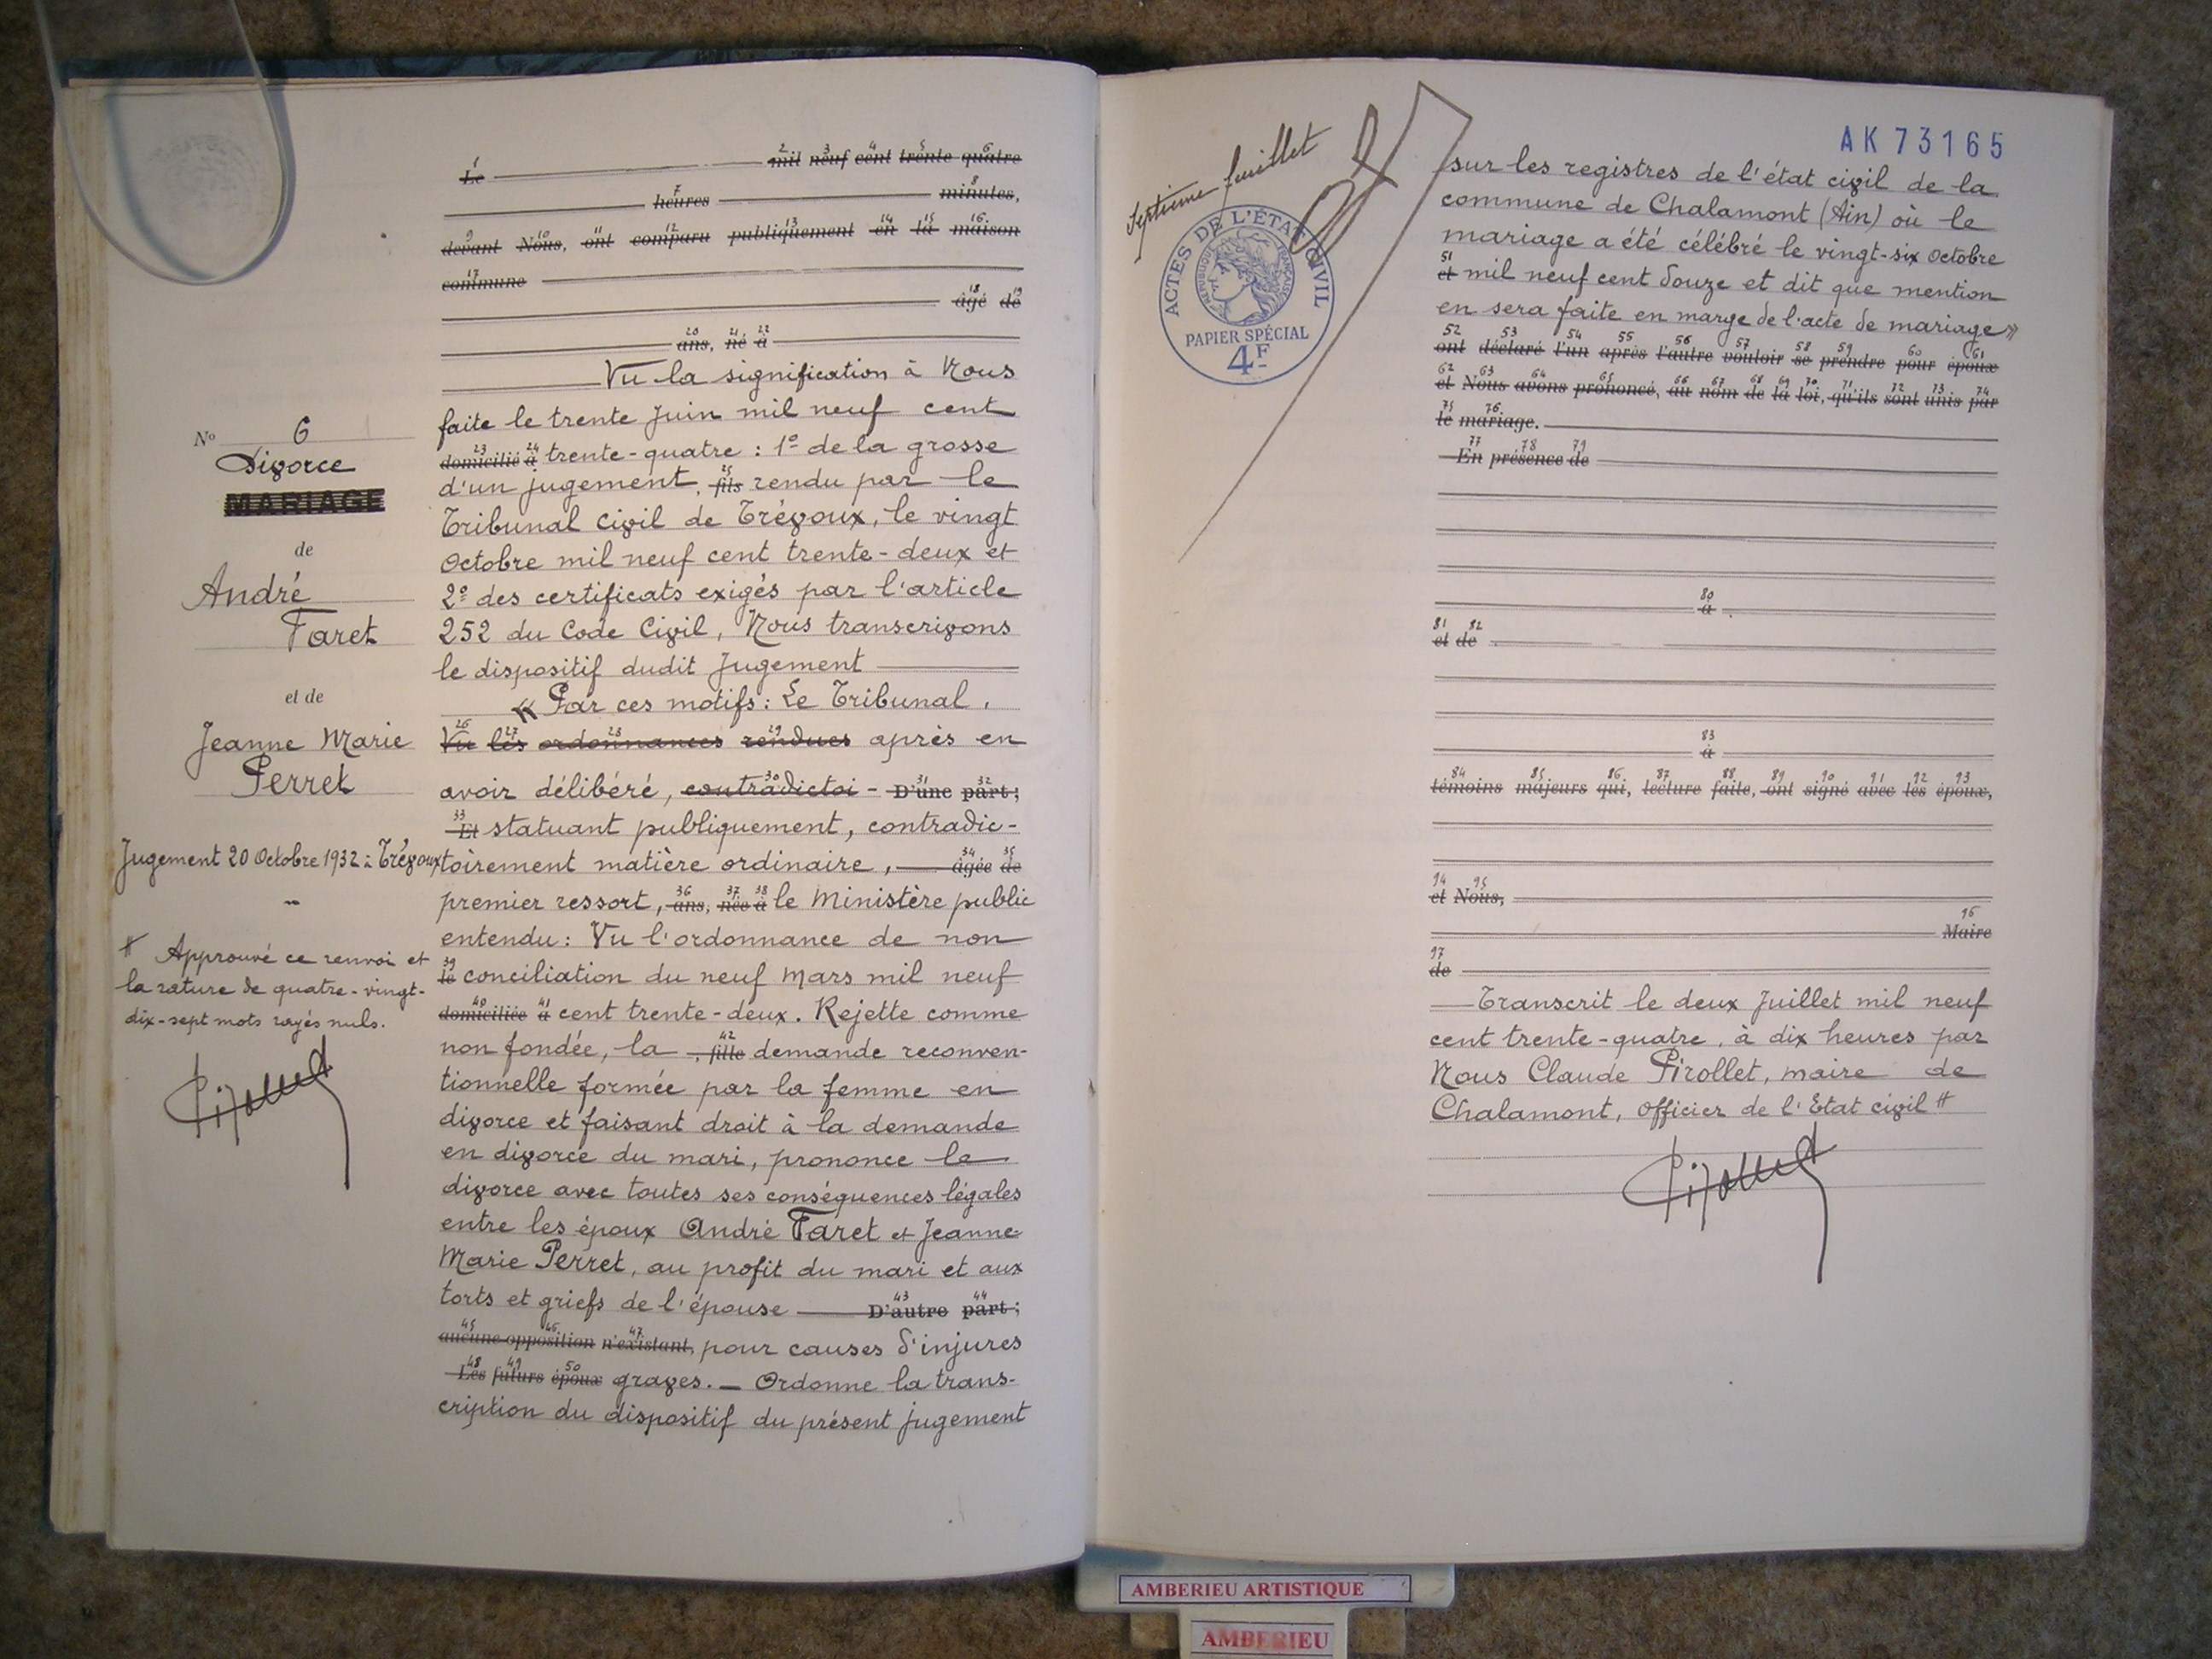 Le mil neuf cent trente quatre
heures minutes,
devant Nous, ont comparu publiquement en la maison
commune
âgé de
ans, né à
Vu la signification à Nous
faite le trente Juin mil neuf cent
domicilié à trente-quatre : 1º de la grosse
d'un jugement, fils rendu par le
Tribunal Civil de Trévoux, le vingt
Octobre mil neuf cent trente-deux et
2º des certificats exigés par l'article
252 du Code Civil, Nous transcrivons
le dispositif dudit Jugement
« Par ces motifs : Le Tribunal,
Vu les ordonnances rendues après en
avoir délibéré, contradictoi - D'une part ;
Et statuant publiquement, contradic-
toirement matière ordinaire, âgée de
premier ressort, ans, née à le Ministère public
entendu : Vu l'ordonnance de non
le conciliation du neuf Mars mil neuf
domiciliée à cent trente-deux. Rejette comme
non fondée, la , fille demande reconven-
tionnelle formée par la femme en
divorce et faisant droit à la demande
en divorce du mari, prononce le
divorce avec toutes ses conséquences légales
entre les époux André Faret et Jeanne
Marie Perret, au profit du mari et aux
torts et griefs de l'épouse D'autre part ;
aucune opposition n'existant, pour causes d'injures
Les futurs époux graves. — Ordonne la trans-
cription du dispositif du présent jugement
Nº 6
Divorce
MARIAGE
de
André
Faret
et de
Jeanne Marie
Perret
Jugement 20 Octobre 1932 à Trévoux
# Approuvé ce renvoi et
la rature de quatre-vingt-
dix-sept mots rayés nuls.
Pirollet
Septième feuillet
ACTES DE L'ÉTAT CIVIL
RÉPUBLIQUE FRANÇAISE
PAPIER SPÉCIAL
4F
AK 73165
sur les registres de l'état civil de la
commune de Chalamont (Ain) où le
mariage a été célébré le vingt-six Octobre
et mil neuf cent douze et dit que mention
en sera faite en marge de l'acte de mariage »
ont déclaré l'un après l'autre vouloir se prendre pour époux
et Nous avons prononcé, au nom de la loi, qu'ils sont unis par
le mariage.
En présence de
à
et de
à
témoins majeurs qui, lecture faite, ont signé avec les époux,
et Nous,
Maire
de
Transcrit le deux Juillet mil neuf
cent trente-quatre, à dix heures par
Nous Claude Pirollet, maire de
Chalamont, Officier de l'Etat civil #
Pirollet
AMBERIEU ARTISTIQUE
AMBERIEU